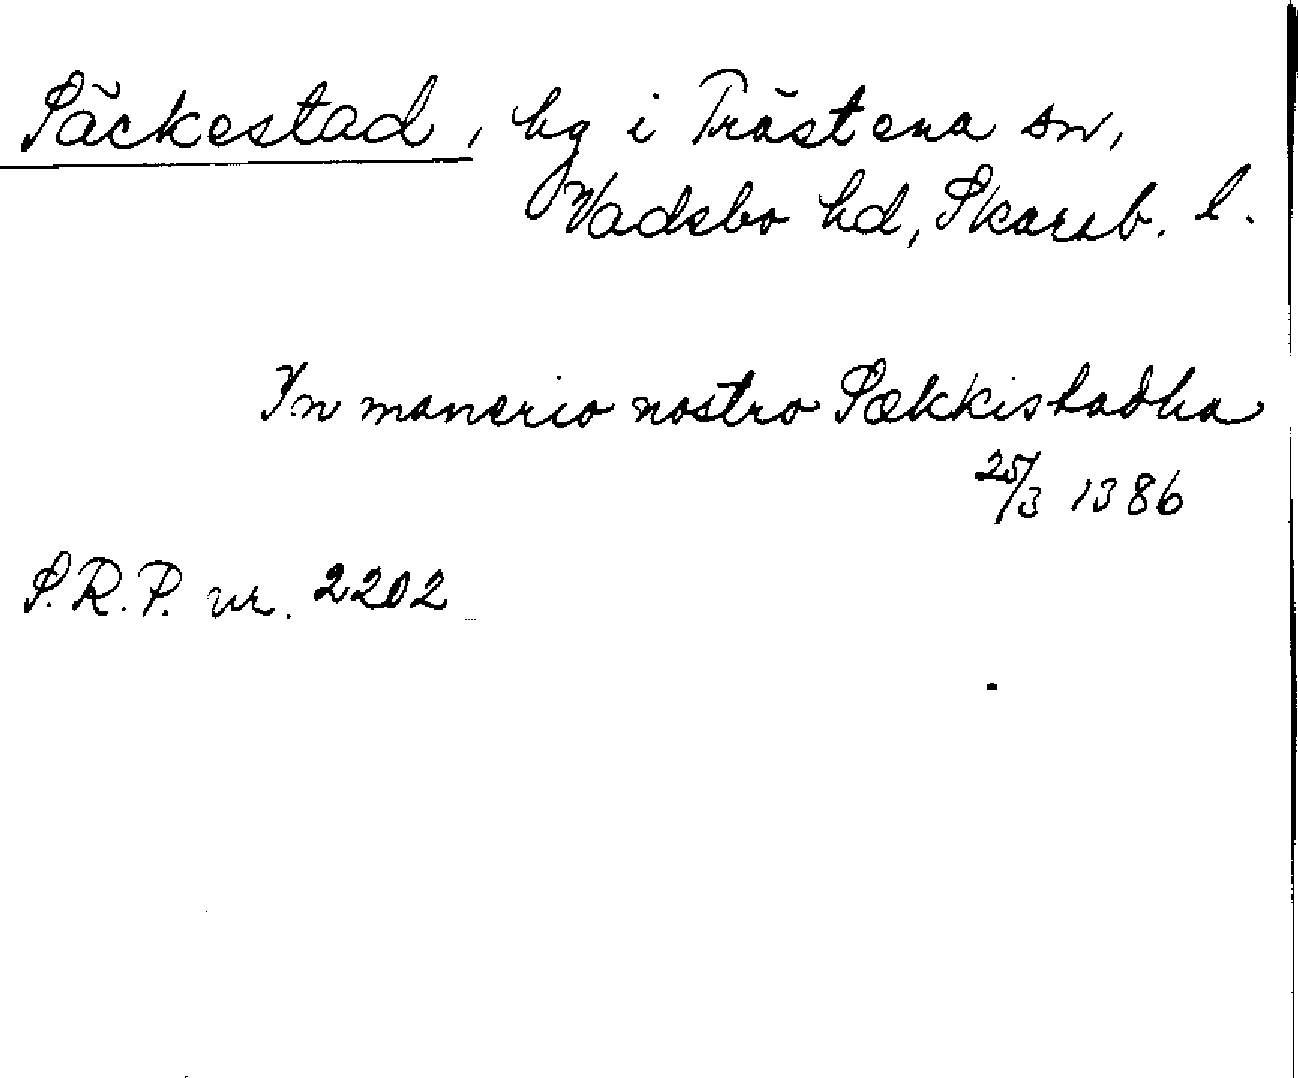 Säckestad, hg i Trästena sn,
Vadsbo hd, Skarab. l.
In manerio nostro Sækkistadha
25/3 1386
S.R.P. nr. 2202